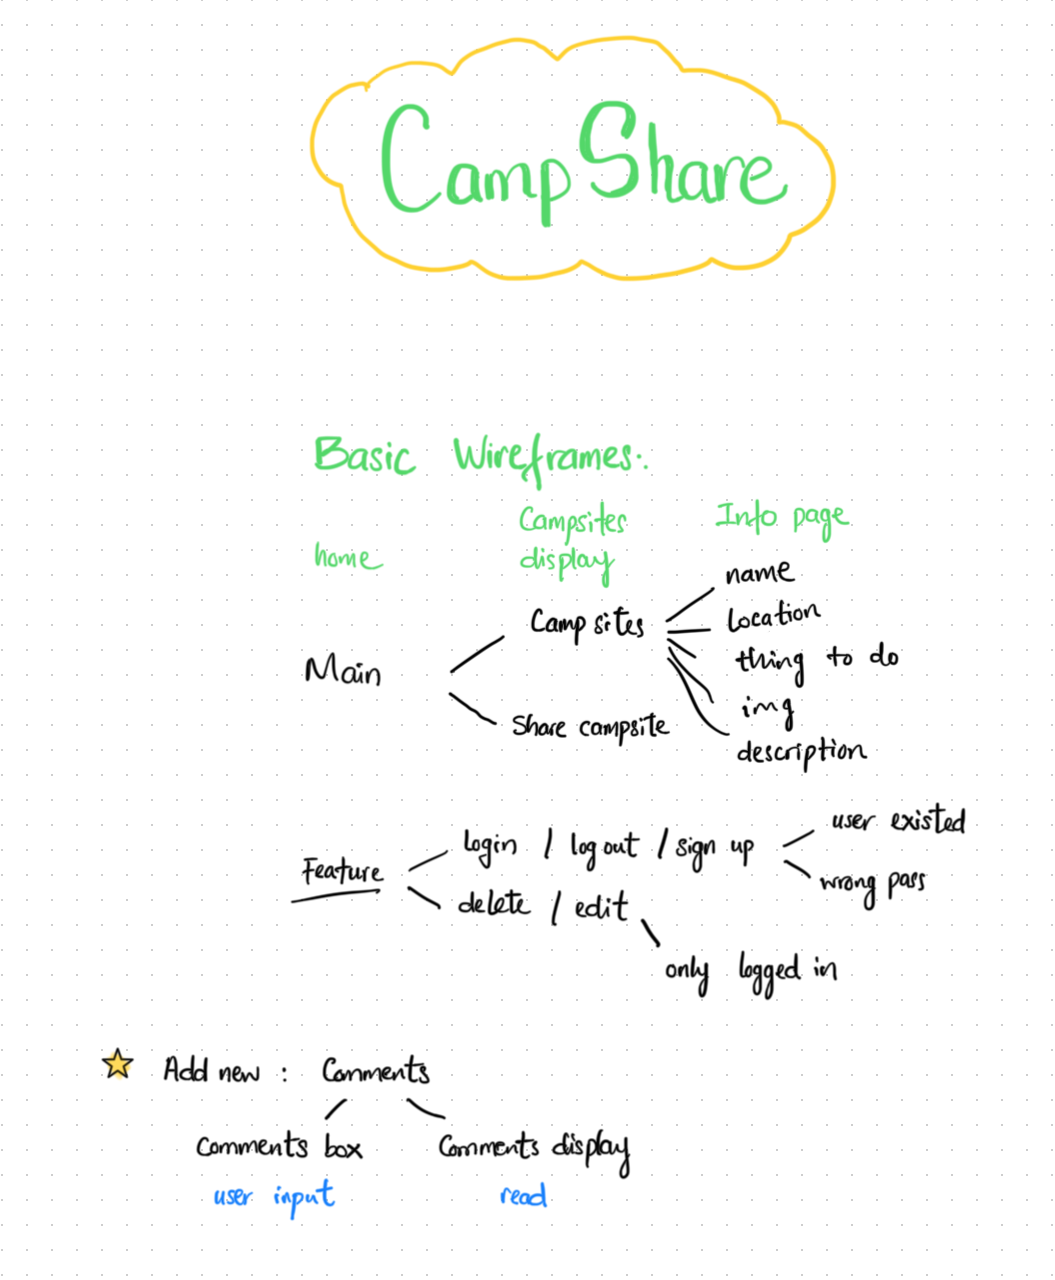 Camp Share
Basic Wireframes:
home
Campsites
display
Info page
Main
Camp sites
Share campsite
name
Location
thing to do
img
description
Feature
login / log out / sign up
user existed
wrong pass
delete / edit
only logged in
Add new : Comments
Comments box
user input
Comments display
read